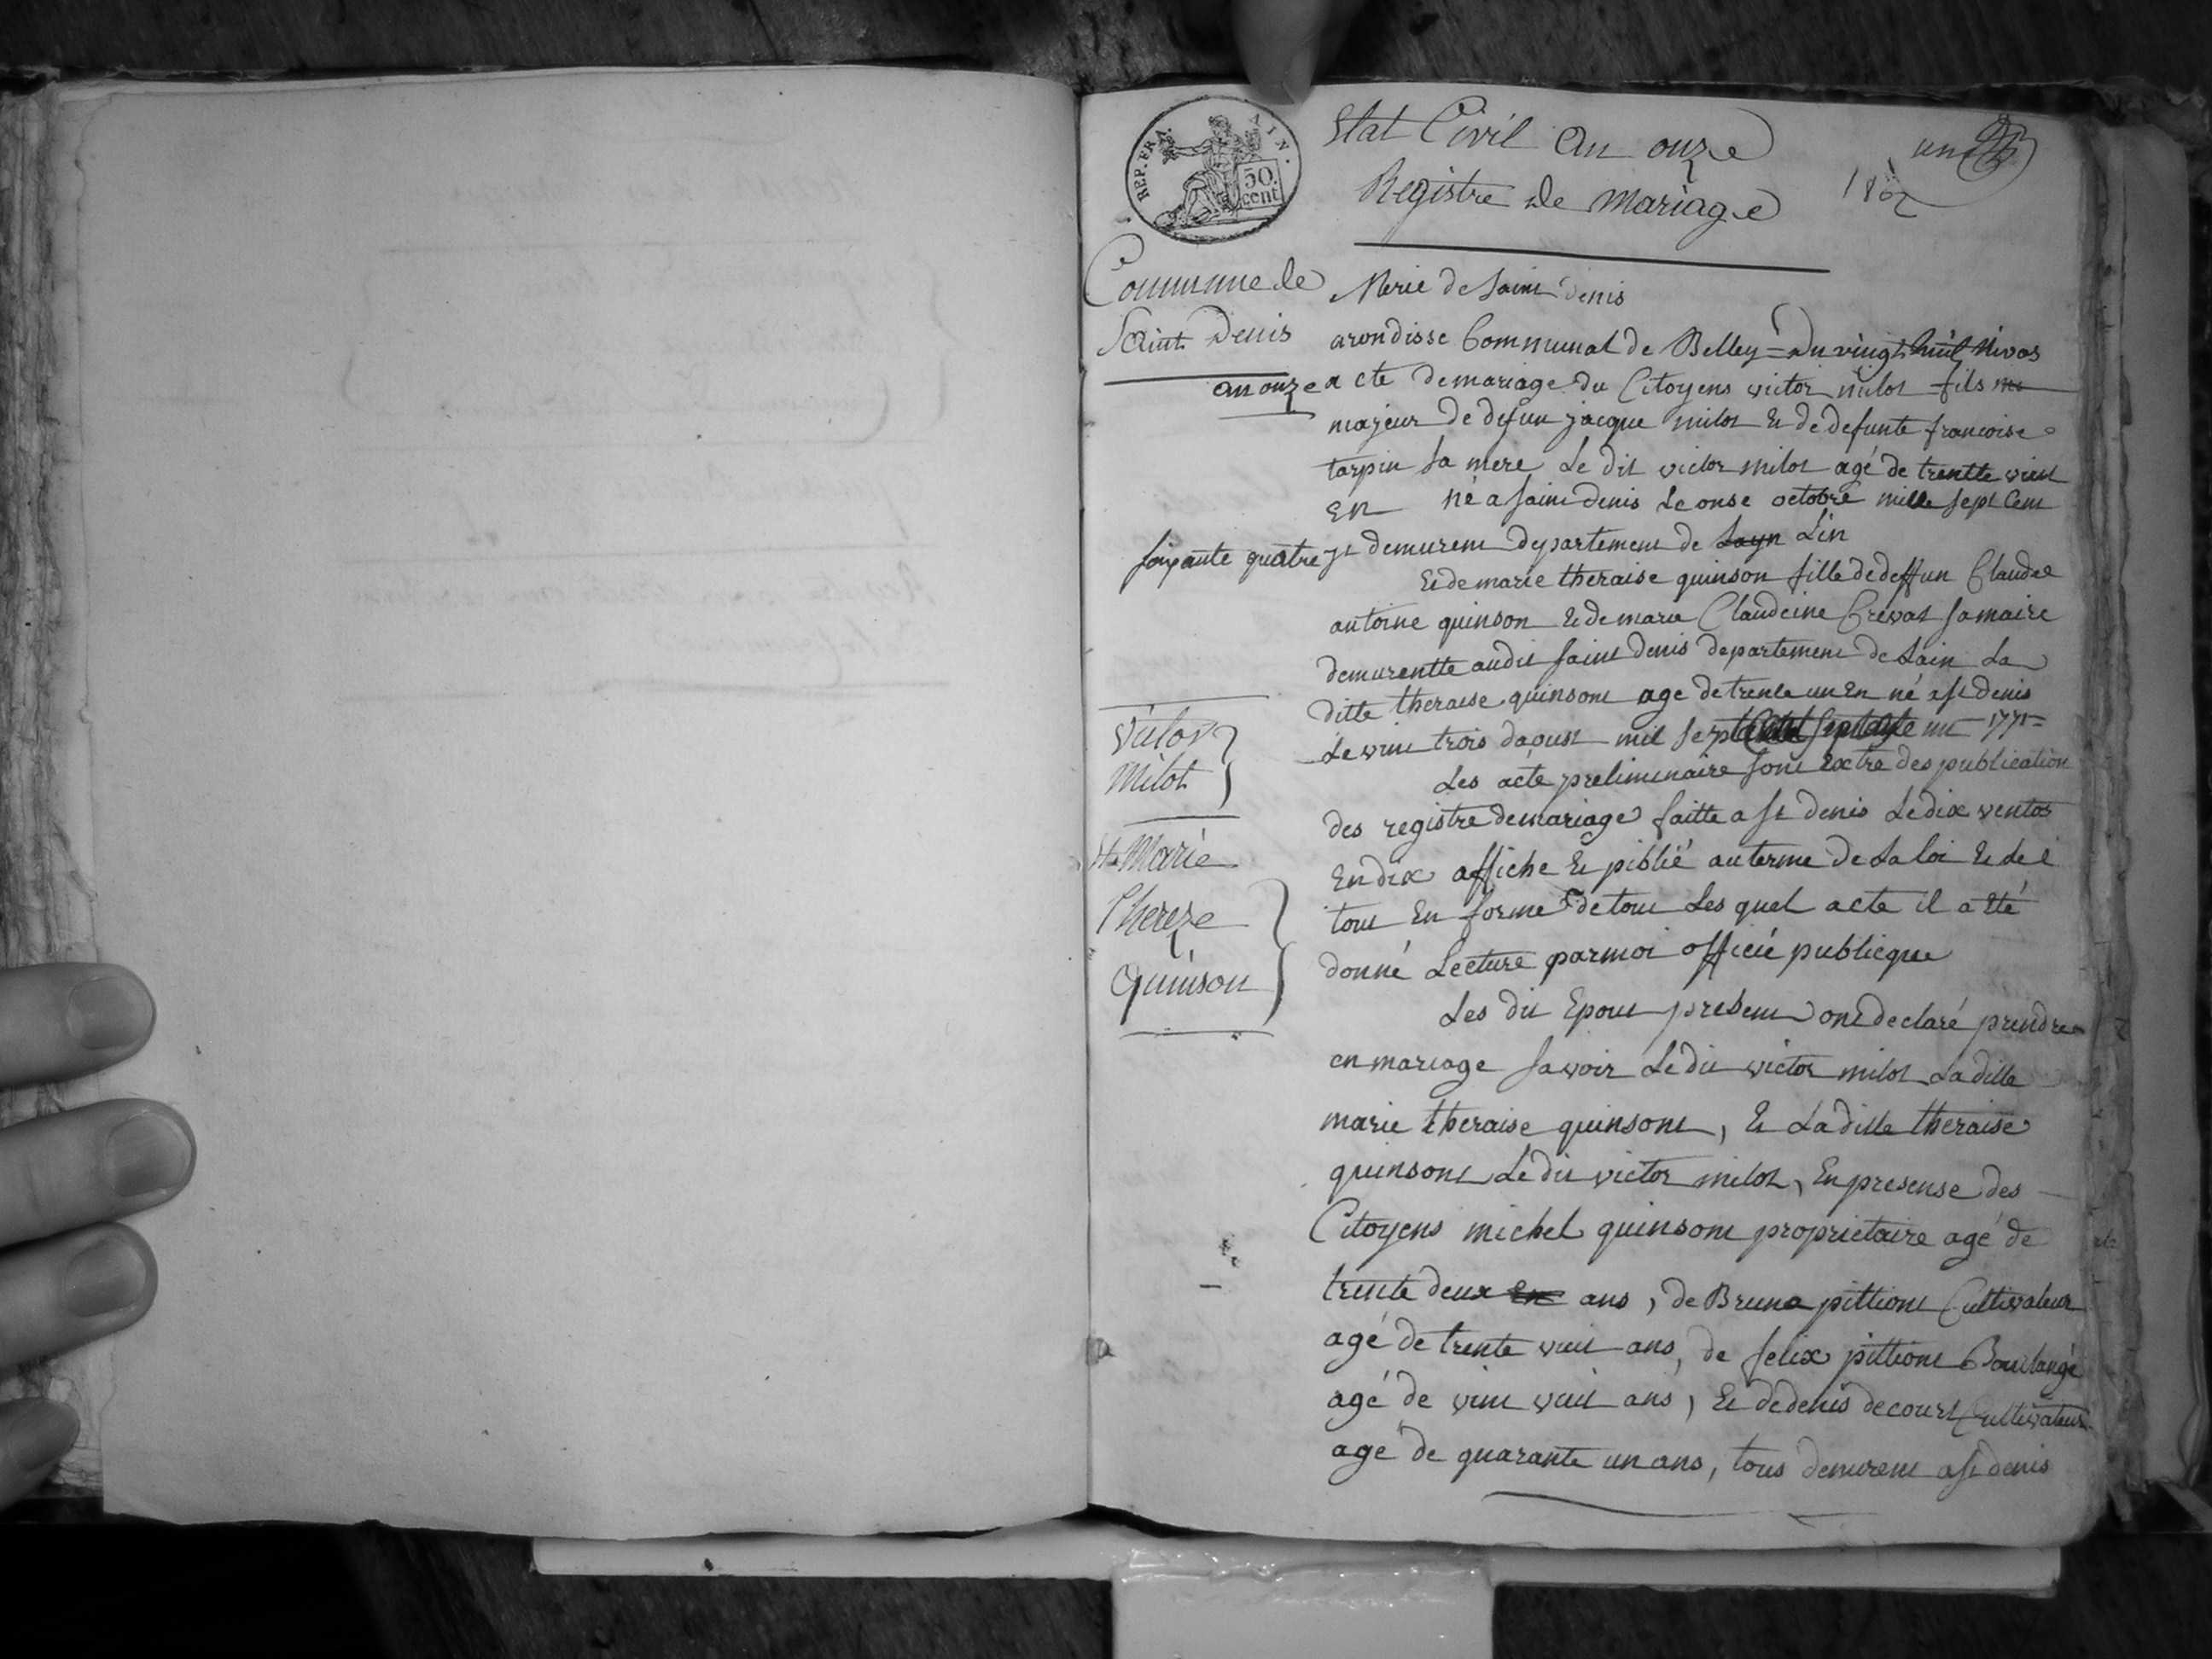 REP. FRA. AIN.
50. cent
Etat Civil an onze
un
Registre de mariage
1802
Commune de
Saint Denis
an onze
Merie de saint denis
arondisse Communal de Belley = Du vingt huit nivos
acte de mariage du Citoyens victor milot fils
majeur de defun jacque milot Et de defunte francoise
tarpin sa mere Le dit victor milot agé de trentte vuit
En né a saint denis Le onse octobre mille sept Cent
soixante quatre y demurent departement de Layn Lin
Et de marie theraise quinson fille de deffun Claude
antoine quinson Et de marie Claudeine Crevat sa maire
demurentte audit saint denis departement de Lain La
ditte theraise quinsont age de trente un En né a st denis
Le vint trois daoust mil sept Cent septante un 1771=
Les acte preliminaire sont Extre des publication
des registre de mariage faitte a st denis Le dix ventos
En dix affiche Et piblié au terme de La loi Et Le
tout En forme de tout Les quel acte il a Eté
donné Lecture par moi officié publicque
Victor
Milot
Et Marie
Thereze
Quinson
Les dit Epout present ont declaré prendre
en mariage savoir Le dit victor milot La ditte
marie theraise quinsont, Et La ditte theraise
quinsont Le dit victor milot, En presense des
Citoyens michel quinsont proprietaire agé de
trente deux En ans, de Bruno pittiont Cultivateur
agé de trente vuit ans, de felix pittiont Boulangé
agé de vint vuit ans, Et de denis decourt Cultivateur
agé de quarante un ans, tous demurent a st denis